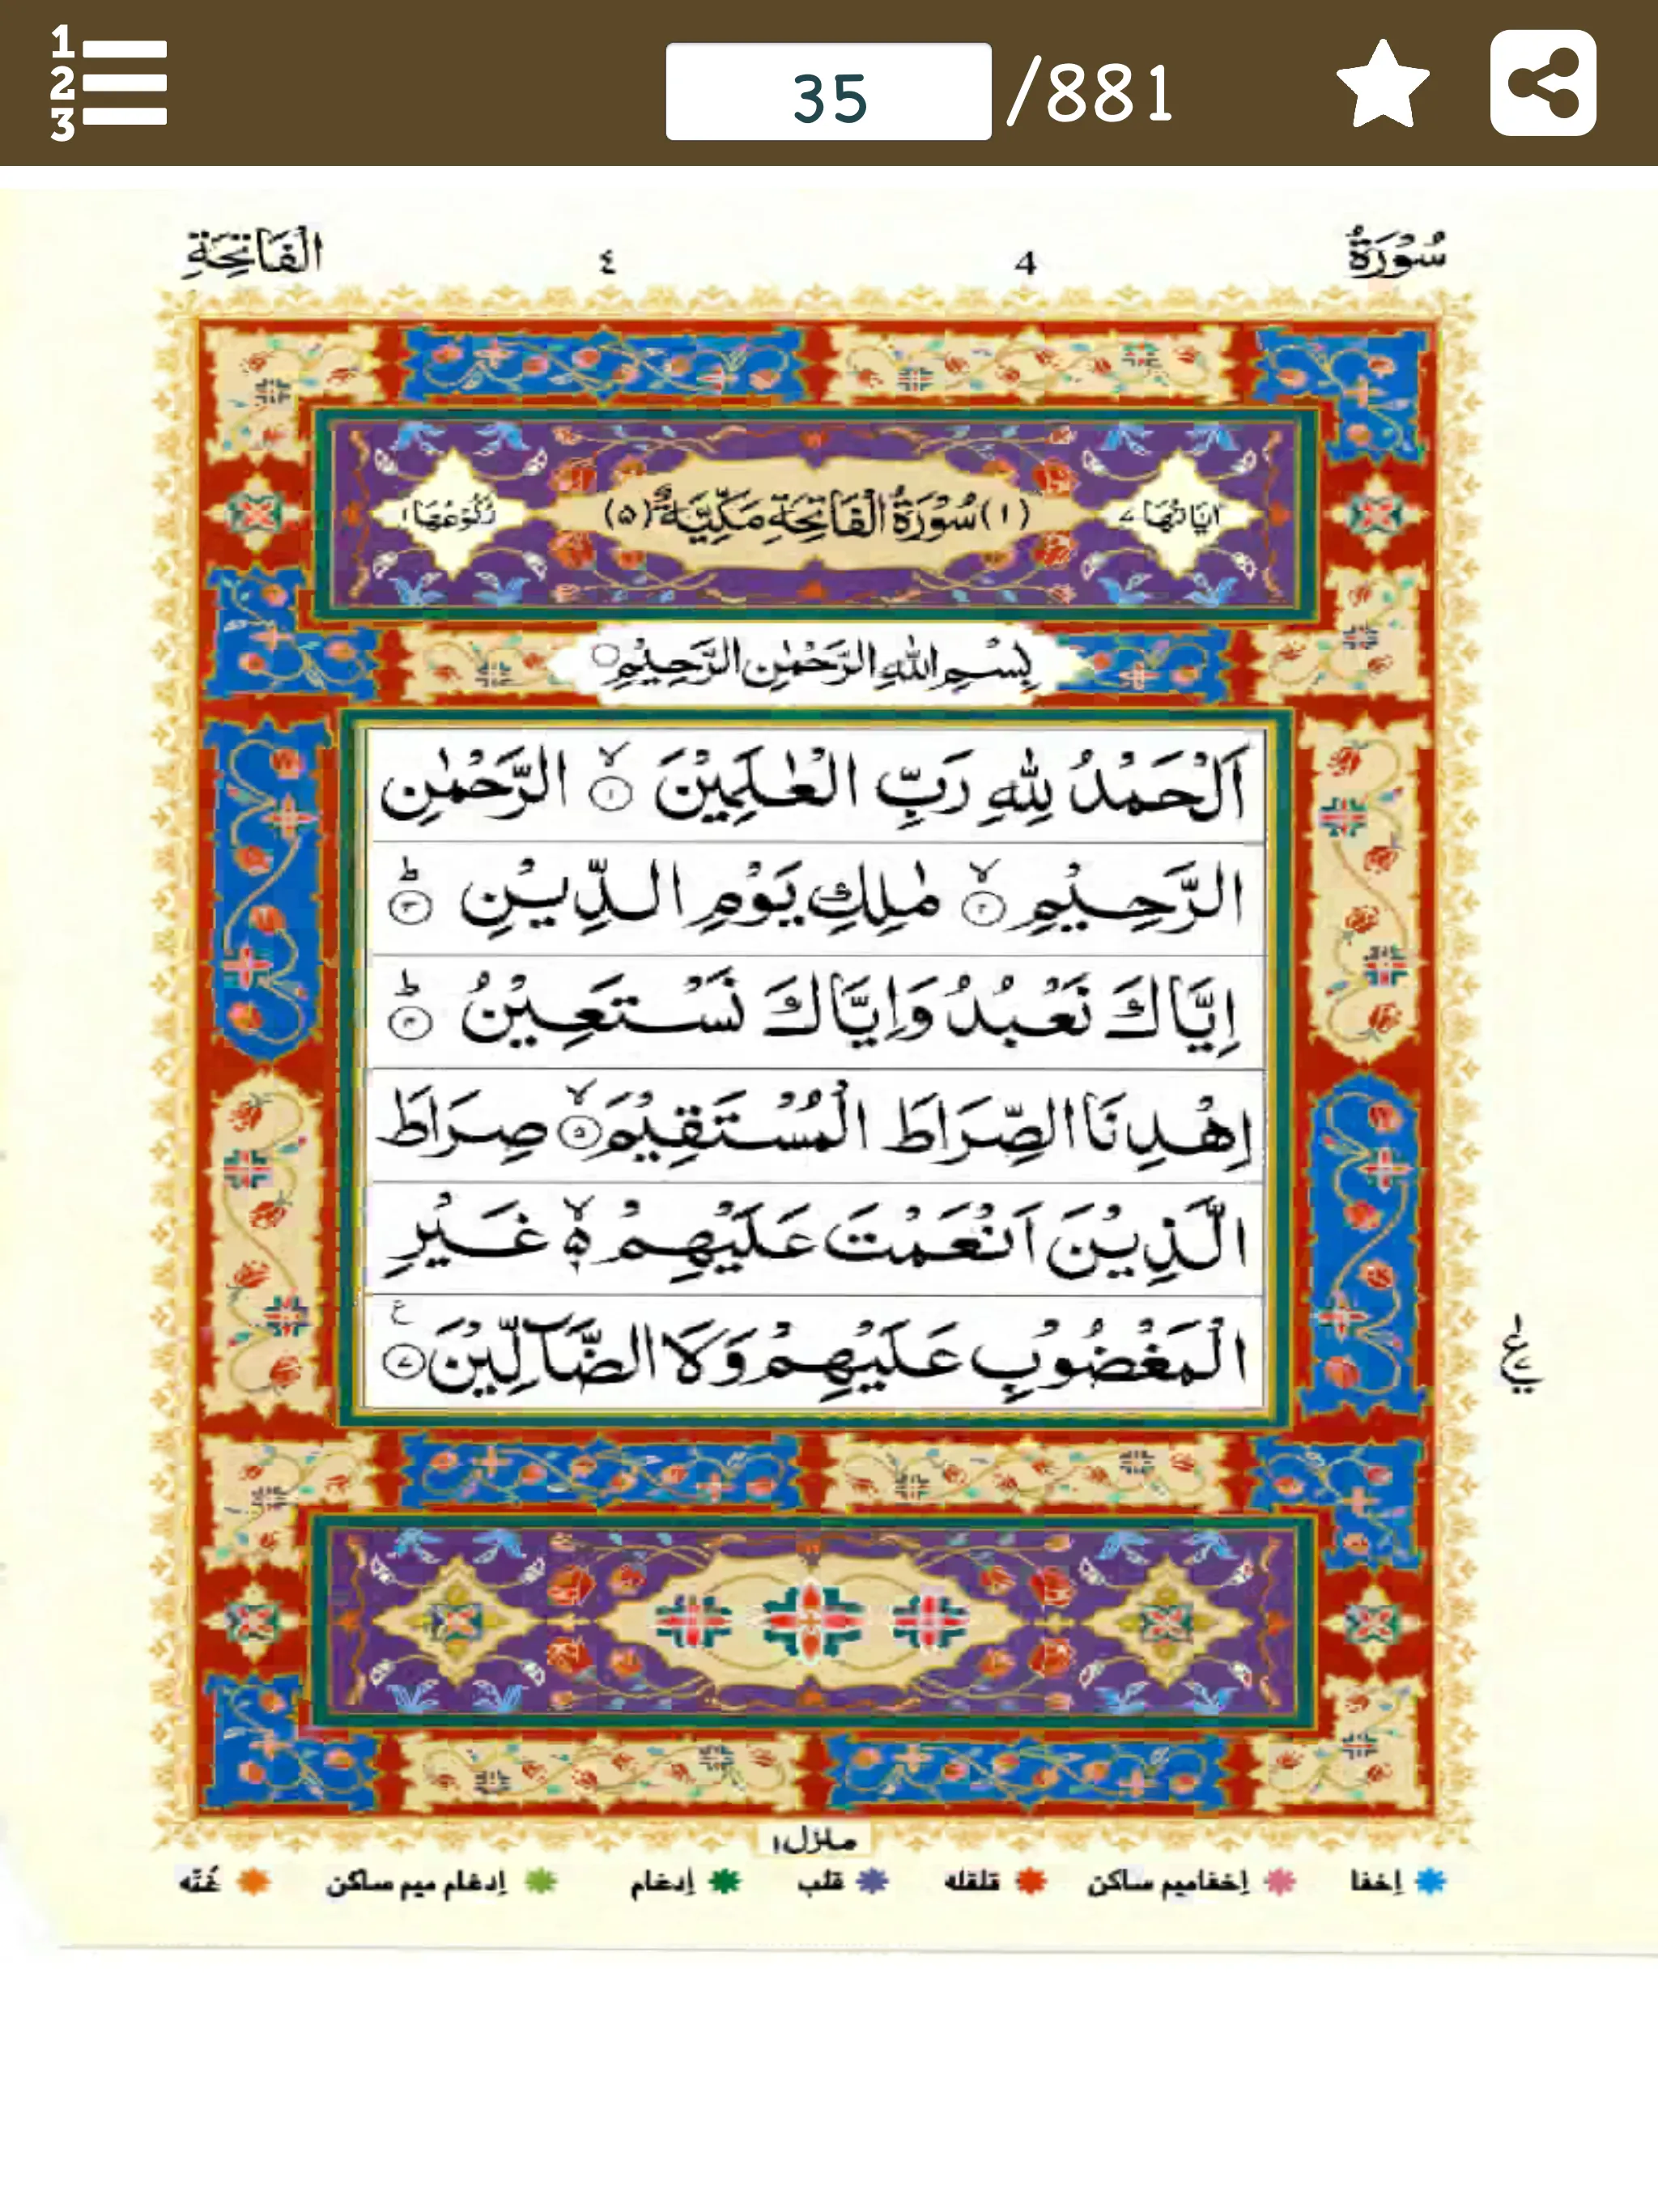 1
2
3
35 /881
سُوْرَةُ 4 ٤ الْفَاتِحَةِ
اٰيَاتُهَا ٧ (١) سُوْرَةُ الْفَاتِحَةِ مَكِّيَّةٌ (٥) رُكُوْعُهَا ١
بِسْمِ اللّٰهِ الرَّحْمٰنِ الرَّحِيْمِ
اَلْحَمْدُ لِلّٰهِ رَبِّ الْعٰلَمِيْنَ ۙ﴿١﴾ الرَّحْمٰنِ
الرَّحِيْمِ ۙ﴿٢﴾ مٰلِكِ يَوْمِ الدِّيْنِ ؕ﴿٣﴾
اِيَّاكَ نَعْبُدُ وَاِيَّاكَ نَسْتَعِيْنُ ؕ﴿٤﴾
اِهْدِنَا الصِّرَاطَ الْمُسْتَقِيْمَ ۙ﴿٥﴾ صِرَاطَ
الَّذِيْنَ اَنْعَمْتَ عَلَيْهِمْ ۙ۬ۦ غَيْرِ
الْمَغْضُوْبِ عَلَيْهِمْ وَلَا الضَّآلِّيْنَ ﴿٧﴾
منزل ١
إخفا إخفاميم ساكن قلقله قلب إدغام إدغام ميم ساكن غُنّه